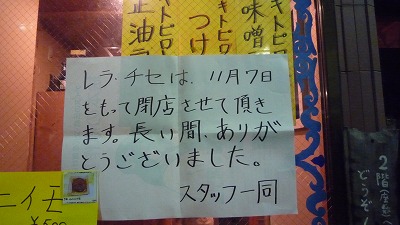 キトピロ
味噌
キトピロ
つけ
正油ラ
レラ・チセは、11月7日
をもって閉店させて頂き
ます。長い間、ありが
とうございました。
スタッフ一同
ニイモ
¥500
2階(座敷)
どうぞ!